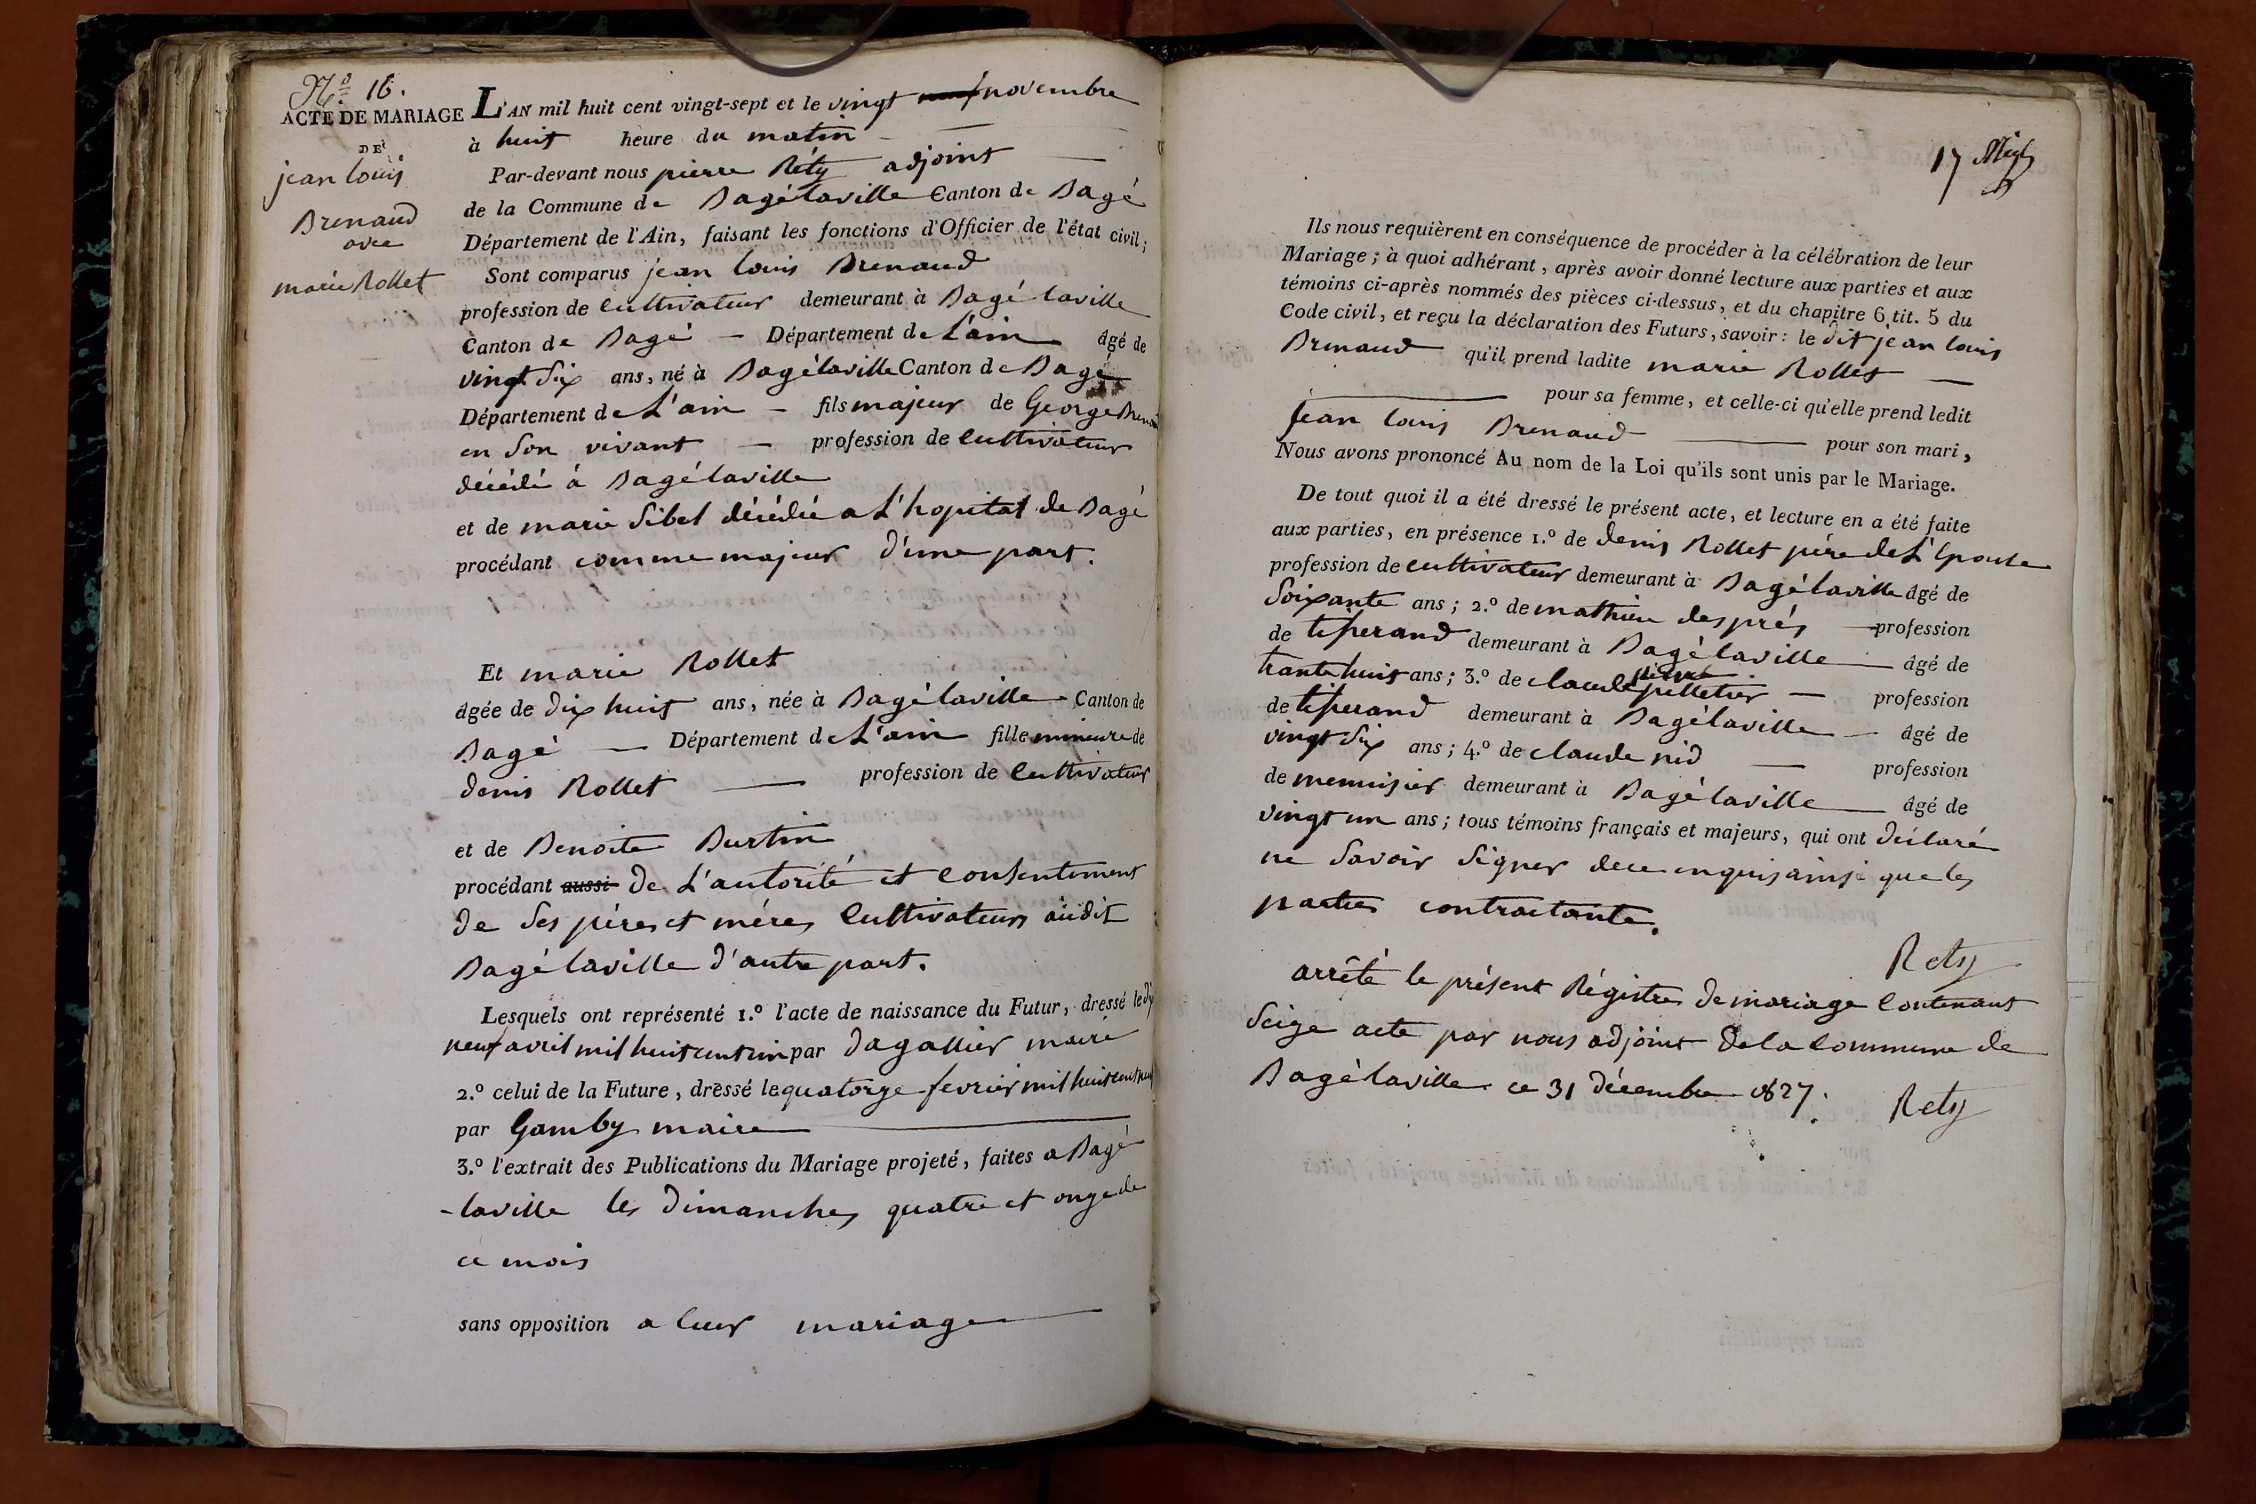 N.o 16.
ACTE DE MARIAGE
DE
jean louis
Brenaud
avec
marie Rollet
L'AN mil huit cent vingt-sept et le vingt neuf novembre
à huit heure du matin
Par-devant nous pierre Réty adjoint
de la Commune de Bagélaville Canton de Bagé
Département de l'Ain, faisant les fonctions d'Officier de l'état civil;
Sont comparus jean louis Brenaud
profession de cultivateur demeurant à Bagé laville
Canton de Bagé — Département de L'ain âgé de
vingt six ans, né à Bagélaville Canton de Bagé
Département de L'ain — fils majeur de George Brenaud
en son vivant — profession de cultivateur
décédé à Bagélaville
et de marie Sibel décédée a L'hopital de Bagé
procédant comme majeur d'une part.
Et marie Rollet
âgée de dix huit ans, née à Bagélaville Canton de
Bagé — Département de L'ain fille mineure de
denis Rollet — profession de cultivateur
et de Benoite Burtin
procédant aussi de L'autorité et consentement
de ses péres et méres cultivateurs audit
Bagélaville d'autre part.
Lesquels ont représenté 1.º l'acte de naissance du Futur, dressé le dix
neuf avril mil huit cent un par dagallier maire
2.º celui de la Future, dressé le quatorze fevrier mil huit cent neuf
par Gamby maire
3.º l'extrait des Publications du Mariage projeté, faites a Bagé
-laville les dimanches quatre et onze de
ce mois
sans opposition a leur mariage
17
Ils nous requièrent en conséquence de procéder à la célébration de leur
Mariage; à quoi adhérant, après avoir donné lecture aux parties et aux
témoins ci-après nommés des pièces ci-dessus, et du chapitre 6 tit. 5 du
Code civil, et reçu la déclaration des Futurs, savoir: le dit jean louis
Brenaud qu'il prend ladite marie Rollet —
pour sa femme, et celle-ci qu'elle prend ledit
jean louis Brenaud — pour son mari,
Nous avons prononcé Au nom de la Loi qu'ils sont unis par le Mariage.
De tout quoi il a été dressé le présent acte, et lecture en a été faite
aux parties, en présence 1.º de denis Rollet père de L'Epouse
profession de cultivateur demeurant à Bagélaville âgé de
soixante ans; 2.º de mathieu des prés profession
de tisserand demeurant à Bagélaville — âgé de
trante huit ans; 3.º de claude pelletier — profession
de tisserand demeurant à Bagélaville — âgé de
vingt six ans; 4.º de claude nid — profession
de menuisier demeurant à Bagélaville — âgé de
vingt un ans; tous témoins français et majeurs, qui ont déclaré
ne savoir signer de ce enquis ainsi que les
parties contractante.
Rety
arrêté le présent Régistre de mariage contenant
seize acte par nous adjoint de la commune de
Bagélaville ce 31 décembre 1827.
Rety